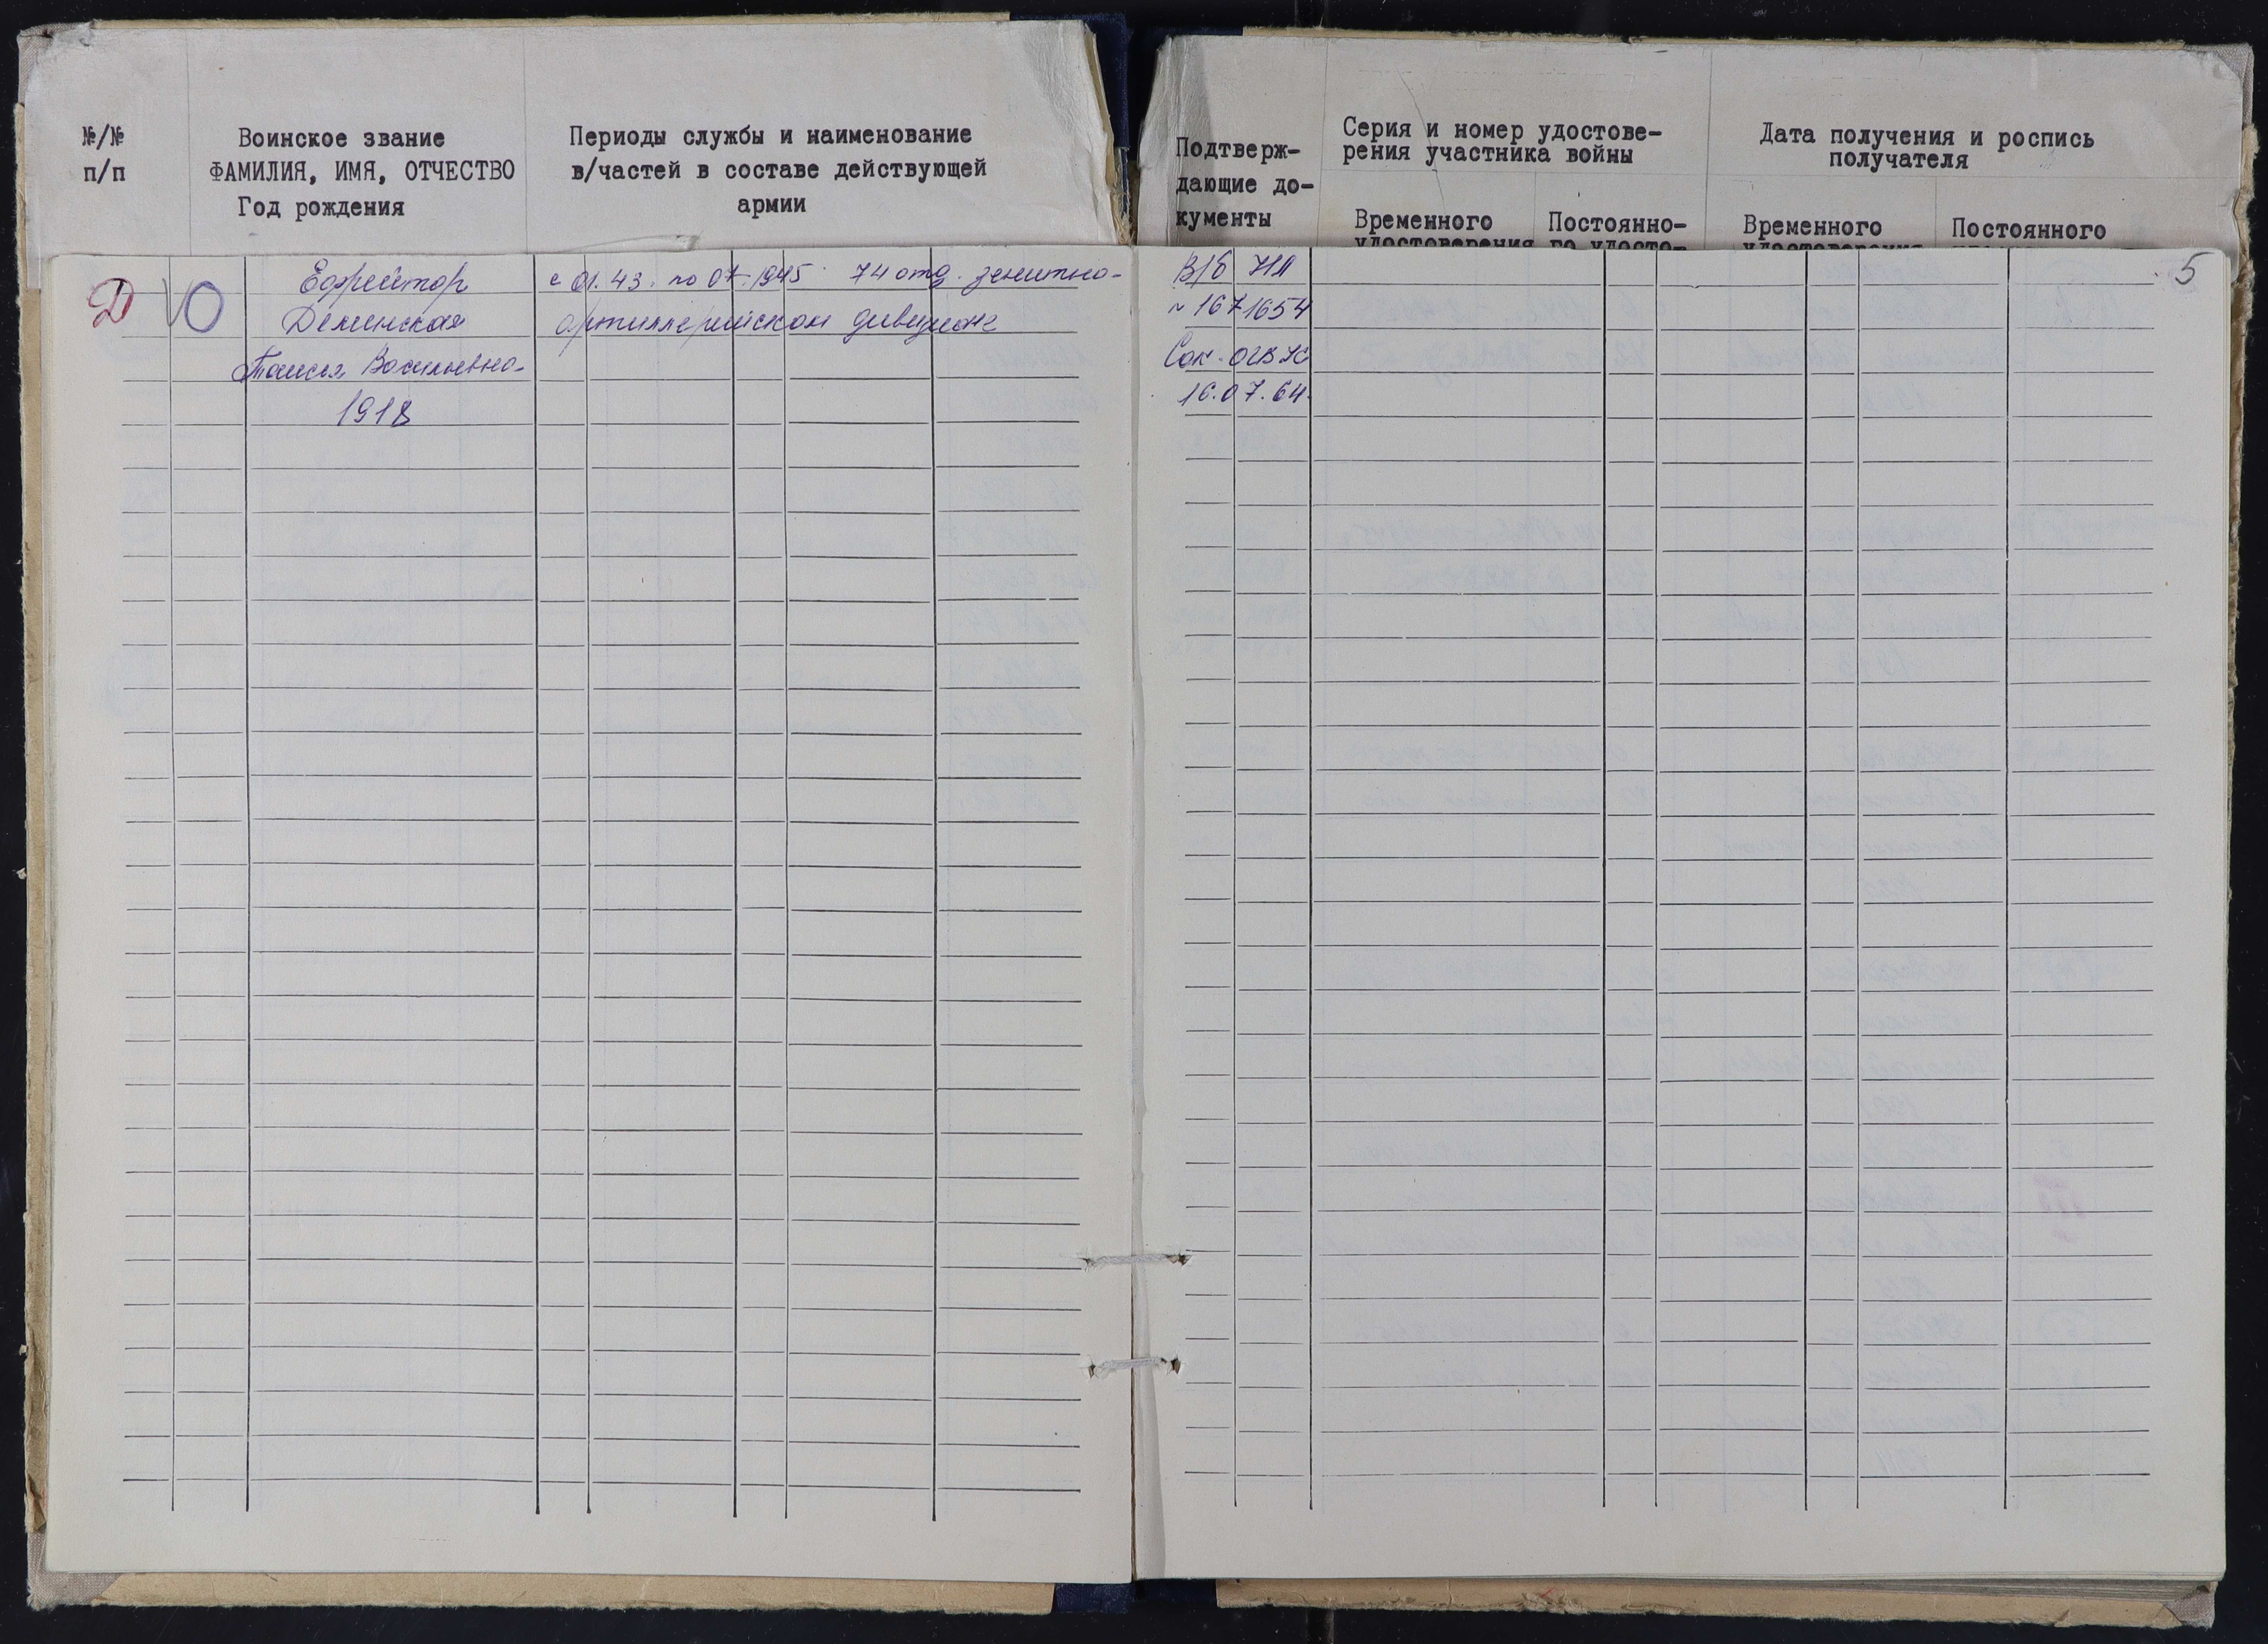 №/№
п/п
Воинское звание
ФАМИЛИЯ, ИМЯ, ОТЧЕСТВО
Год рождения
Периоды службы и наименование
в/частей в составе действующей
армии
Подтверж-
дающие до-
кументы
Серия и номер удостове-
рения участника войны
Временного
удостоверения
Постоянно-
го удосто-
Дата получения и роспись
получателя
Временного
удостоверения
Постоянного
5
Д
Ефрейтор
Деминская
Таисья Васильевна
1918
с 01.43. по 07.1945 74 отд. зенитно-
артиллерийском дивизионе
В/б НЛ
№ 1671654
Сок. ОГВК
16.07.64.